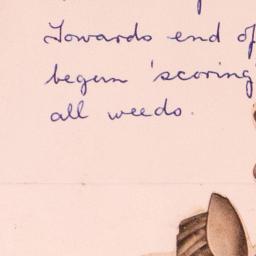 Towards end of
begun 'scoring'
all weeds.